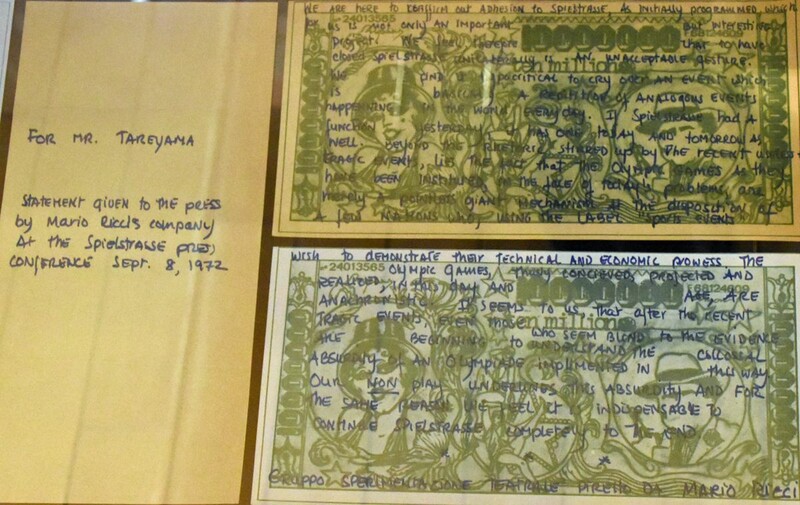 FOR MR. TAREYAMA
STATEMENT GIVEN TO THE PRESS
by MARIO RICCI'S COMPANY
At the Spielstrasse PRESS
CONFERENCE SEPT. 8, 1972
WE ARE HERE TO CONFIRM OUR ADHESION TO SPIELSTRASSE, AS INITIALLY PROGRAMMED, WHICH
24013565
FOR US IS NOT ONLY AN IMPORTANT BUT INTERESTING
10000000
F68124609
PROJECT. WE FEEL THEREFORE THAT TO HAVE
CLOSED SPIELSTRASSE UNILATERALLY IS AN UNACCEPTABLE GESTURE.
ten millions
WE FIND IT HYPOCRITICAL TO CRY OVER AN EVENT WHICH
IS BASICALLY A REPETITION OF ANALOGOUS EVENTS
HAPPENING IN THE WORLD EVERYDAY. IF SPIELSTRASSE HAD A
FUNCTION YESTERDAY, IT HAS ONE TODAY AND TOMORROW AS
WELL. BEYOND THE RHETORIC STIRRED UP BY THE RECENT
TRAGIC EVENTS, LIES THE FACT THAT THE OLYMPIC GAMES AS THEY
HAVE BEEN INSTITUTED, IN THE FACE OF TODAY'S PROBLEMS, ARE
MERELY A POINTLESS GIANT MECHANISM AT THE DISPOSITION OF
A FEW NATIONS WHO, USING THE LABEL "SPORTS EVENTS"
WISH TO DEMONSTRATE THEIR TECHNICAL AND ECONOMIC PROWESS. THE
24013565
OLYMPIC GAMES, THUS CONCEIVED, PROJECTED AND
10000000
F68124609
REALIZED, IN THIS DAY AND AGE, ARE
ANACHRONISTIC. IT SEEMS TO US, THAT AFTER THE RECENT
ten millions
TRAGIC EVENTS, EVEN THOSE WHO SEEM BLIND TO THE EVIDENCE
ARE BEGINNING TO UNDERSTAND THE COLLOSAL
ABSURDITY OF AN OLYMPIADE IMPLIMENTED IN THIS WAY.
OUR NON PLAY UNDERLINES THIS ABSURDITY AND FOR
THE SAME REASON WE FEEL IT IS INDISPENSABLE TO
CONTINUE SPIELSTRASSE COMPLETELY TO THE END.
GRUPPO SPERIMENTAZIONE TEATRALE DIRETTO DA MARIO RICCI